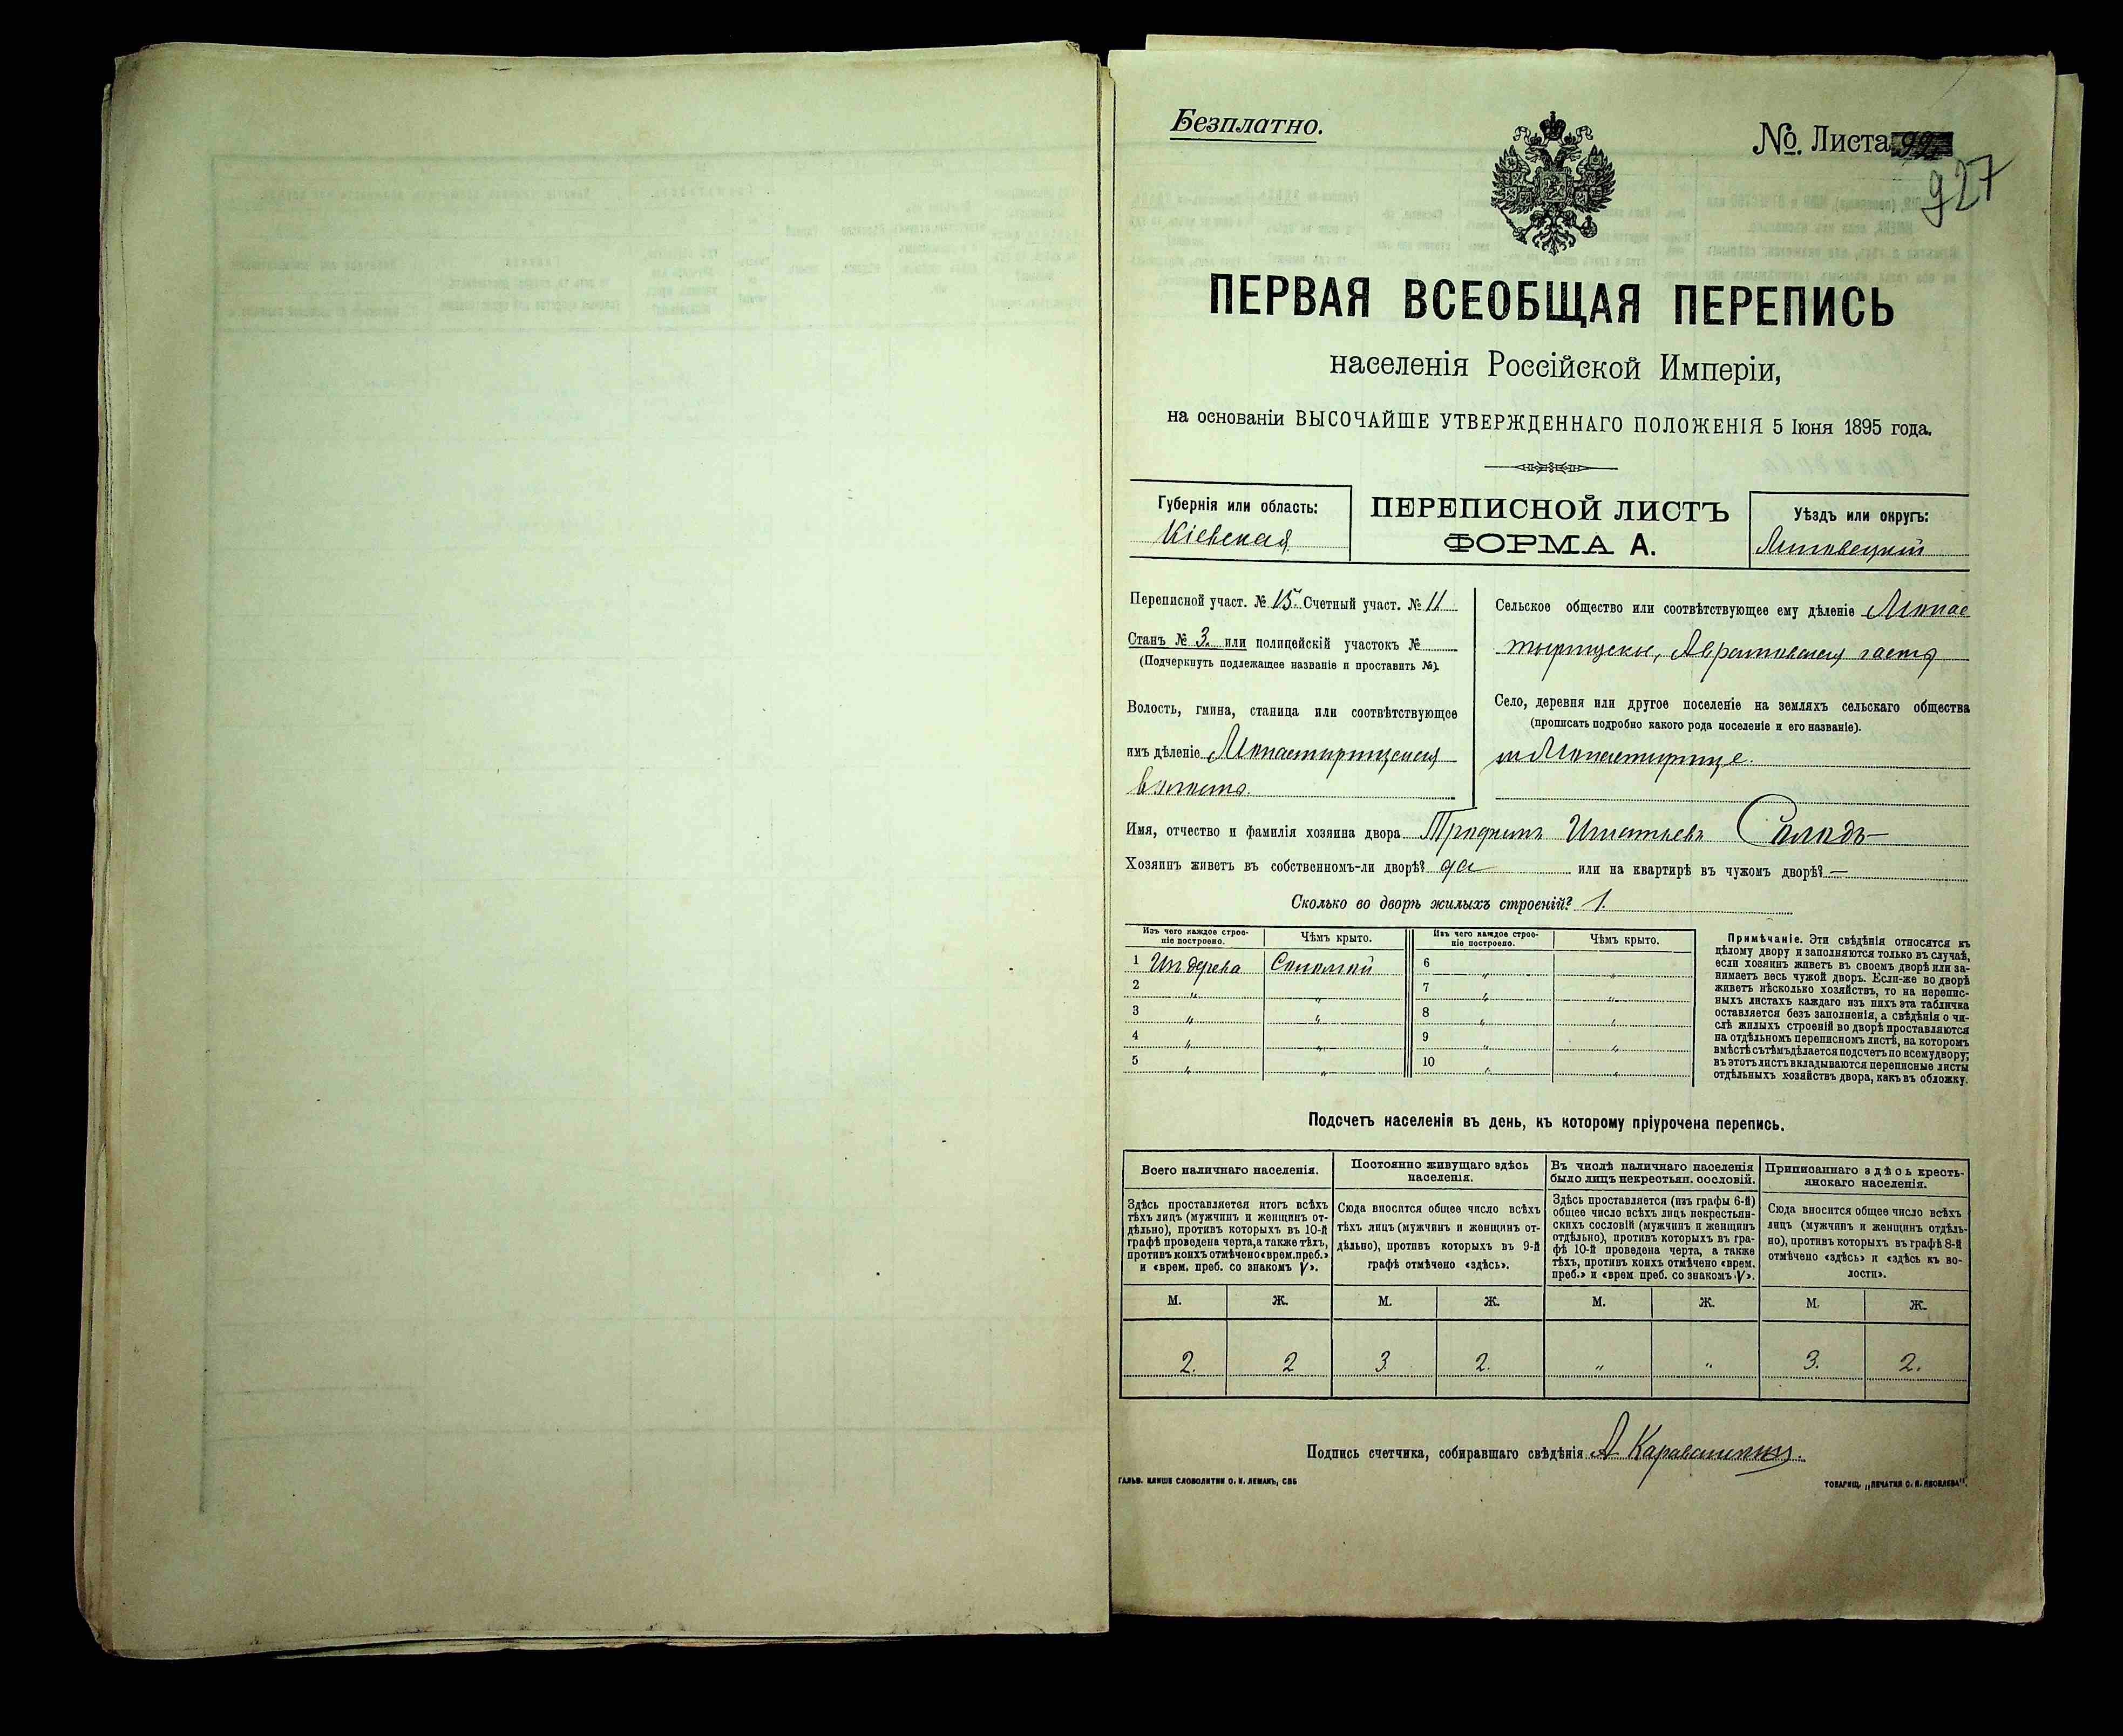 Безплатно.
№. Листа
927
ПЕРВАЯ ВСЕОБЩАЯ ПЕРЕПИСЬ
населенія Россійской Имперіи,
на основаніи ВЫСОЧАЙШЕ УТВЕРЖДЕННАГО ПОЛОЖЕНІЯ 5 Іюня 1895 года.
Губернія или область:
Кіевская
ПЕРЕПИСНОЙ ЛИСТЪ
ФОРМА А.
Уѣздъ или округъ:
Липовецкій
Переписной участ. № 15. Счетный участ. № 11
Станъ № 3. или полицейскій участокъ №
(Подчеркнуть подлежащее названіе и проставить №).
Волость, гмина, станица или соотвѣтствующее
имъ дѣленіе Монастырищенская
волость.
Сельское общество или соотвѣтствующее ему дѣленіе Монас
тырищское, часть
Село, деревня или другое поселеніе на земляхъ сельскаго общества
(прописать подробно какого рода поселеніе и его названіе).
м Монастырище.
Имя, отчество и фамилія хозяина двора Трофимъ Игнатьевъ Солодь
Хозяинъ живетъ въ собственномъ-ли дворѣ? да или на квартирѣ въ чужомъ дворѣ? —
Сколько во дворѣ жилыхъ строеній? 1.
Изъ чего каждое строе-
ніе построено.
Чѣмъ крыто.
Изъ чего каждое строе-
ніе построено.
Чѣмъ крыто.
1 Изъ дерева Соломой 6 „ „
2 „ „ 7 „ „
3 „ „ 8 „ „
4 „ „ 9 „ „
5 „ „ 10 „ „
Примѣчаніе. Эти свѣдѣнія относятся къ
цѣлому двору и заполняются только въ случаѣ,
если хозяинъ живетъ въ своемъ дворѣ или за-
нимаетъ весь чужой дворъ. Если-же во дворѣ
живетъ нѣсколько хозяйствъ, то на перепис-
ныхъ листахъ каждаго изъ нихъ эта табличка
оставляется безъ заполненія, а свѣдѣнія о чи-
слѣ жилыхъ строеній во дворѣ проставляются
на отдѣльномъ переписномъ листѣ, на которомъ
вмѣстѣ съ тѣмъ дѣлается подсчетъ по всему двору;
въ этотъ листъ вкладываются переписные листы
отдѣльныхъ хозяйствъ двора, какъ въ обложку.
Подсчетъ населенія въ день, къ которому пріурочена перепись.
Всего наличнаго населенія.
Здѣсь проставляется итогъ всѣхъ
тѣхъ лицъ (мужчинъ и женщинъ от-
дѣльно), противъ которыхъ въ 10-й
графѣ проведена черта, а также тѣхъ,
противъ коихъ отмѣчено «врем. преб.»
и «врем. преб. со знакомъ V».
Постоянно живущаго здѣсь
населенія.
Сюда вносится общее число всѣхъ
тѣхъ лицъ (мужчинъ и женщинъ от-
дѣльно), противъ которыхъ въ 9-й
графѣ отмѣчено «здѣсь».
Въ числѣ наличнаго населенія
было лицъ некрестьян. сословій.
Здѣсь проставляется (изъ графы 6-й)
общее число всѣхъ лицъ некрестьян-
скихъ сословій (мужчинъ и женщинъ
отдѣльно), противъ которыхъ въ гра-
фѣ 10-й проведена черта, а также
тѣхъ, противъ коихъ отмѣчено «врем.
преб.» и «врем преб. со знакомъ V».
Приписаннаго здѣсь кресть-
янскаго населенія.
Сюда вносится общее число всѣхъ
лицъ (мужчинъ и женщинъ отдѣль-
но), противъ которыхъ въ графѣ 8-й
отмѣчено «здѣсь» и «здѣсь къ во-
лости».
М. Ж. М. Ж. М. Ж. М. Ж.
2. 2 3 2. „ „ 3. 2.
Подпись счетчика, собиравшаго свѣдѣнія А
ГАЛЬВ. КЛИШЕ СЛОВОЛИТНИ О. И. ЛЕМАНЪ, СПБ
ТОВАРИЩ. „ПЕЧАТНЯ С. П. ЯКОВЛЕВА".